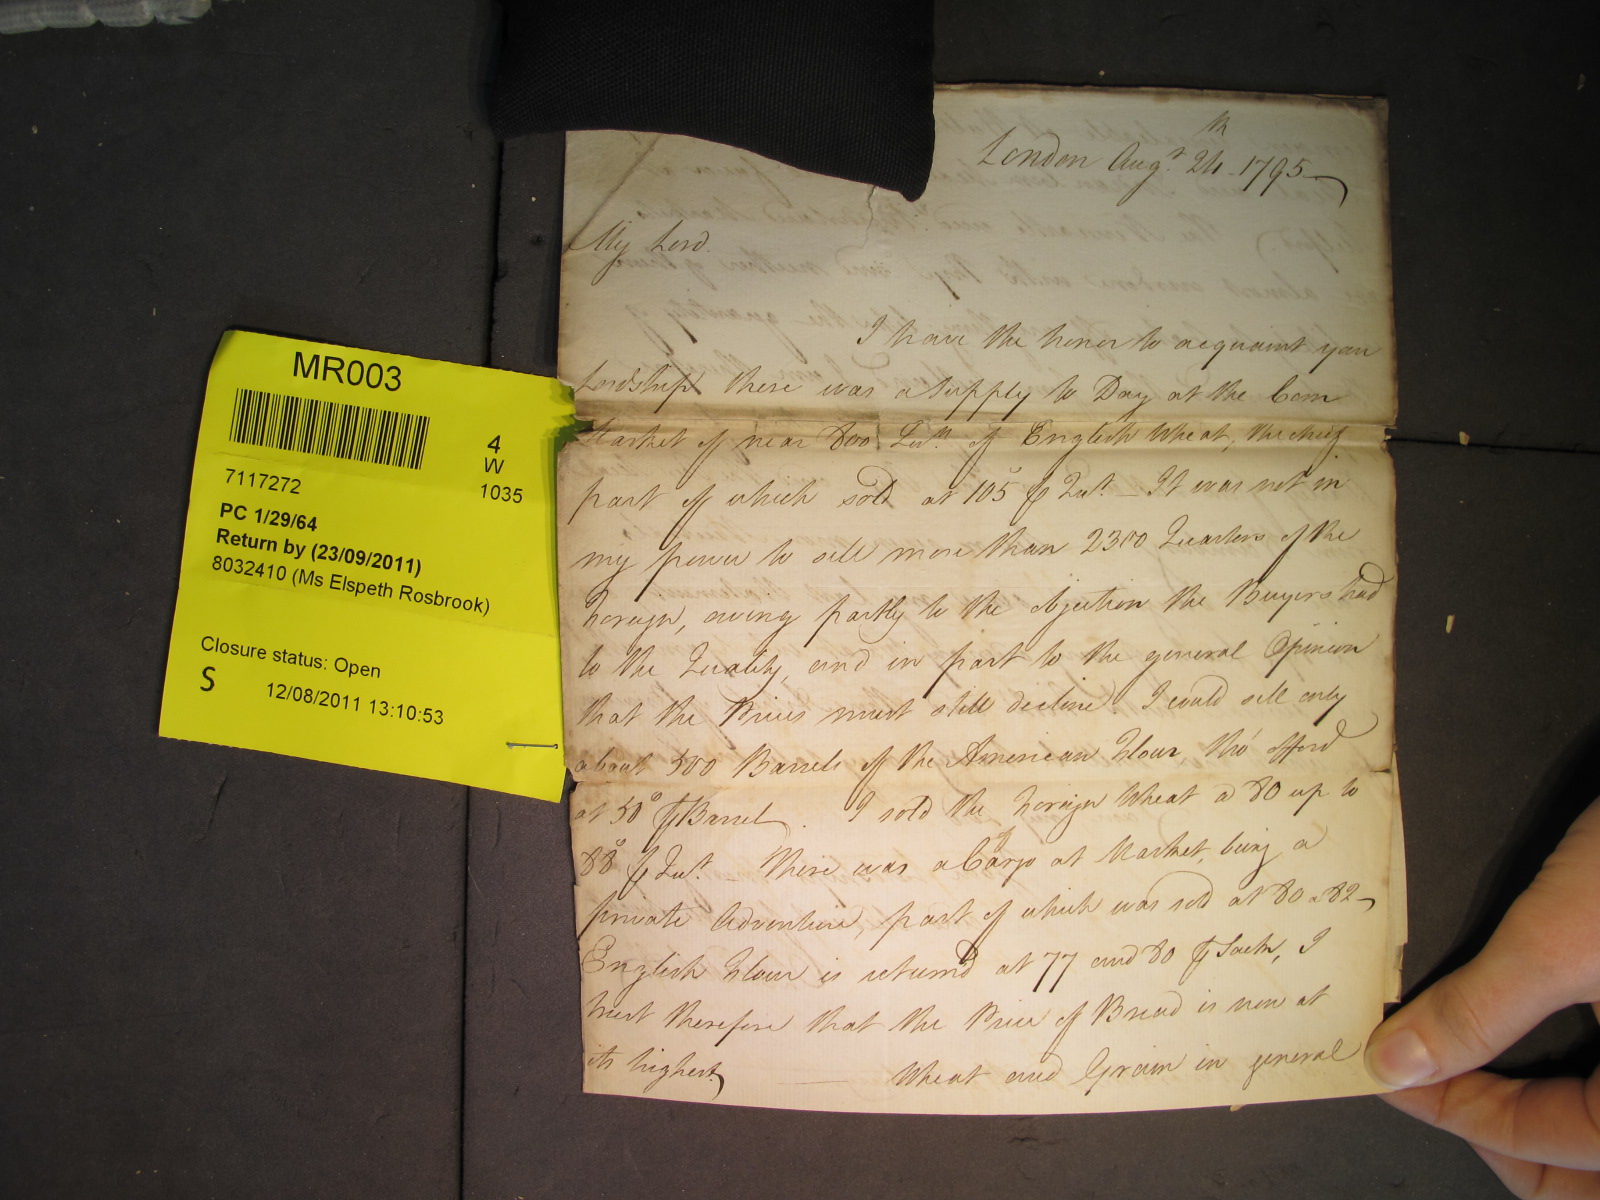 MR003
4
W
1035
7117272
PC 1/29/64
Return by (23/09/2011)
8032410 (Ms Elspeth Rosbrook)
Closure status: Open
S
12/08/2011 13:10:53
London Augt. 24th 1795
My Lord
I have the honor to acquaint your
Lordship there was a Supply to Day at the Corn
Market of near 800 Qurs. of English Wheat, the chief
part of which sold at 105s ⅌ Qur. – It was not in
my power to sell more than 2300 Quarters of the
Foreign, owing partly to the objection the Buyers had
to the Quality, and in part to the general Opinion
that the Prices must still decline. I could sell only
about 500 Barrels of the American Flour, tho' offerd
at 50s ⅌ Barrel. I sold the Foreign Wheat a 80 up to
88s ⅌ Qur. – There was a Cargo at Market, being a
private Adventure, part of which was sold at 80 a 82 –
English Flour is returnd at 77 and 80 ⅌ Sack, I
trust therefore that the Price of Bread is now at
its highest, — Wheat and Grain in general